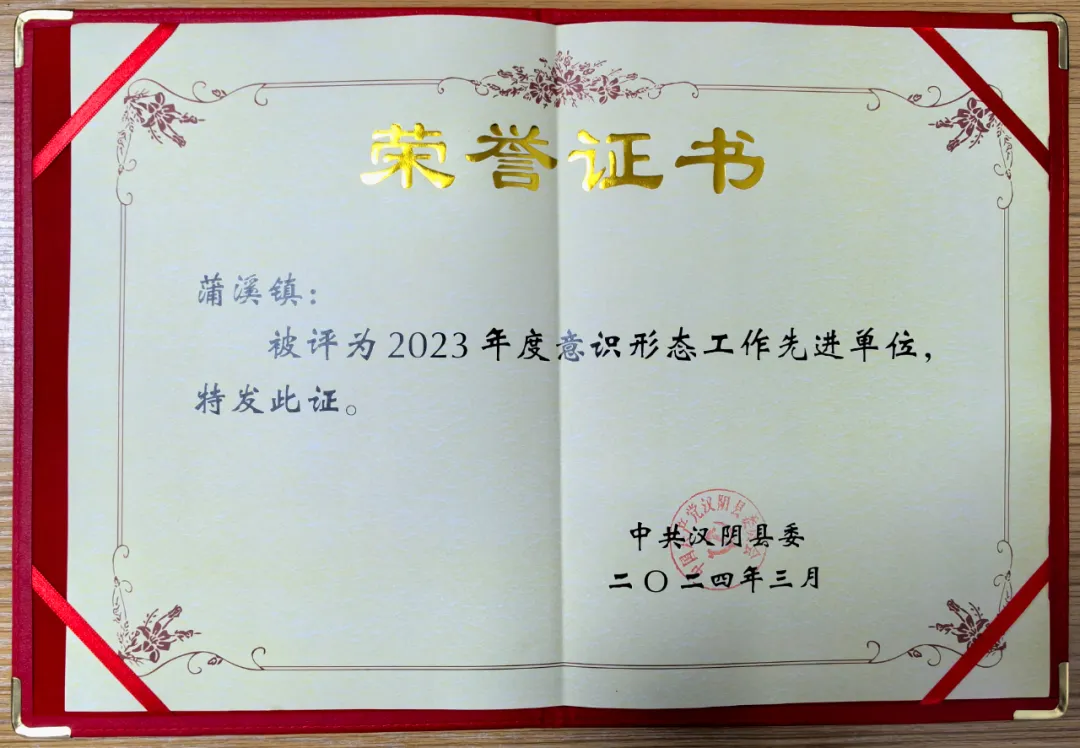 荣誉证书
蒲溪镇：
被评为2023年度意识形态工作先进单位，
特发此证。
中共汉阴县委
二〇二四年三月
中国共产党汉阴县委员会